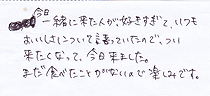 今日
一緒に来た人が好きすぎて、いつも
おいしさについて言っていたので、つい
来たくなって、今日来ました。
まだ食べたことがないので楽しみです。